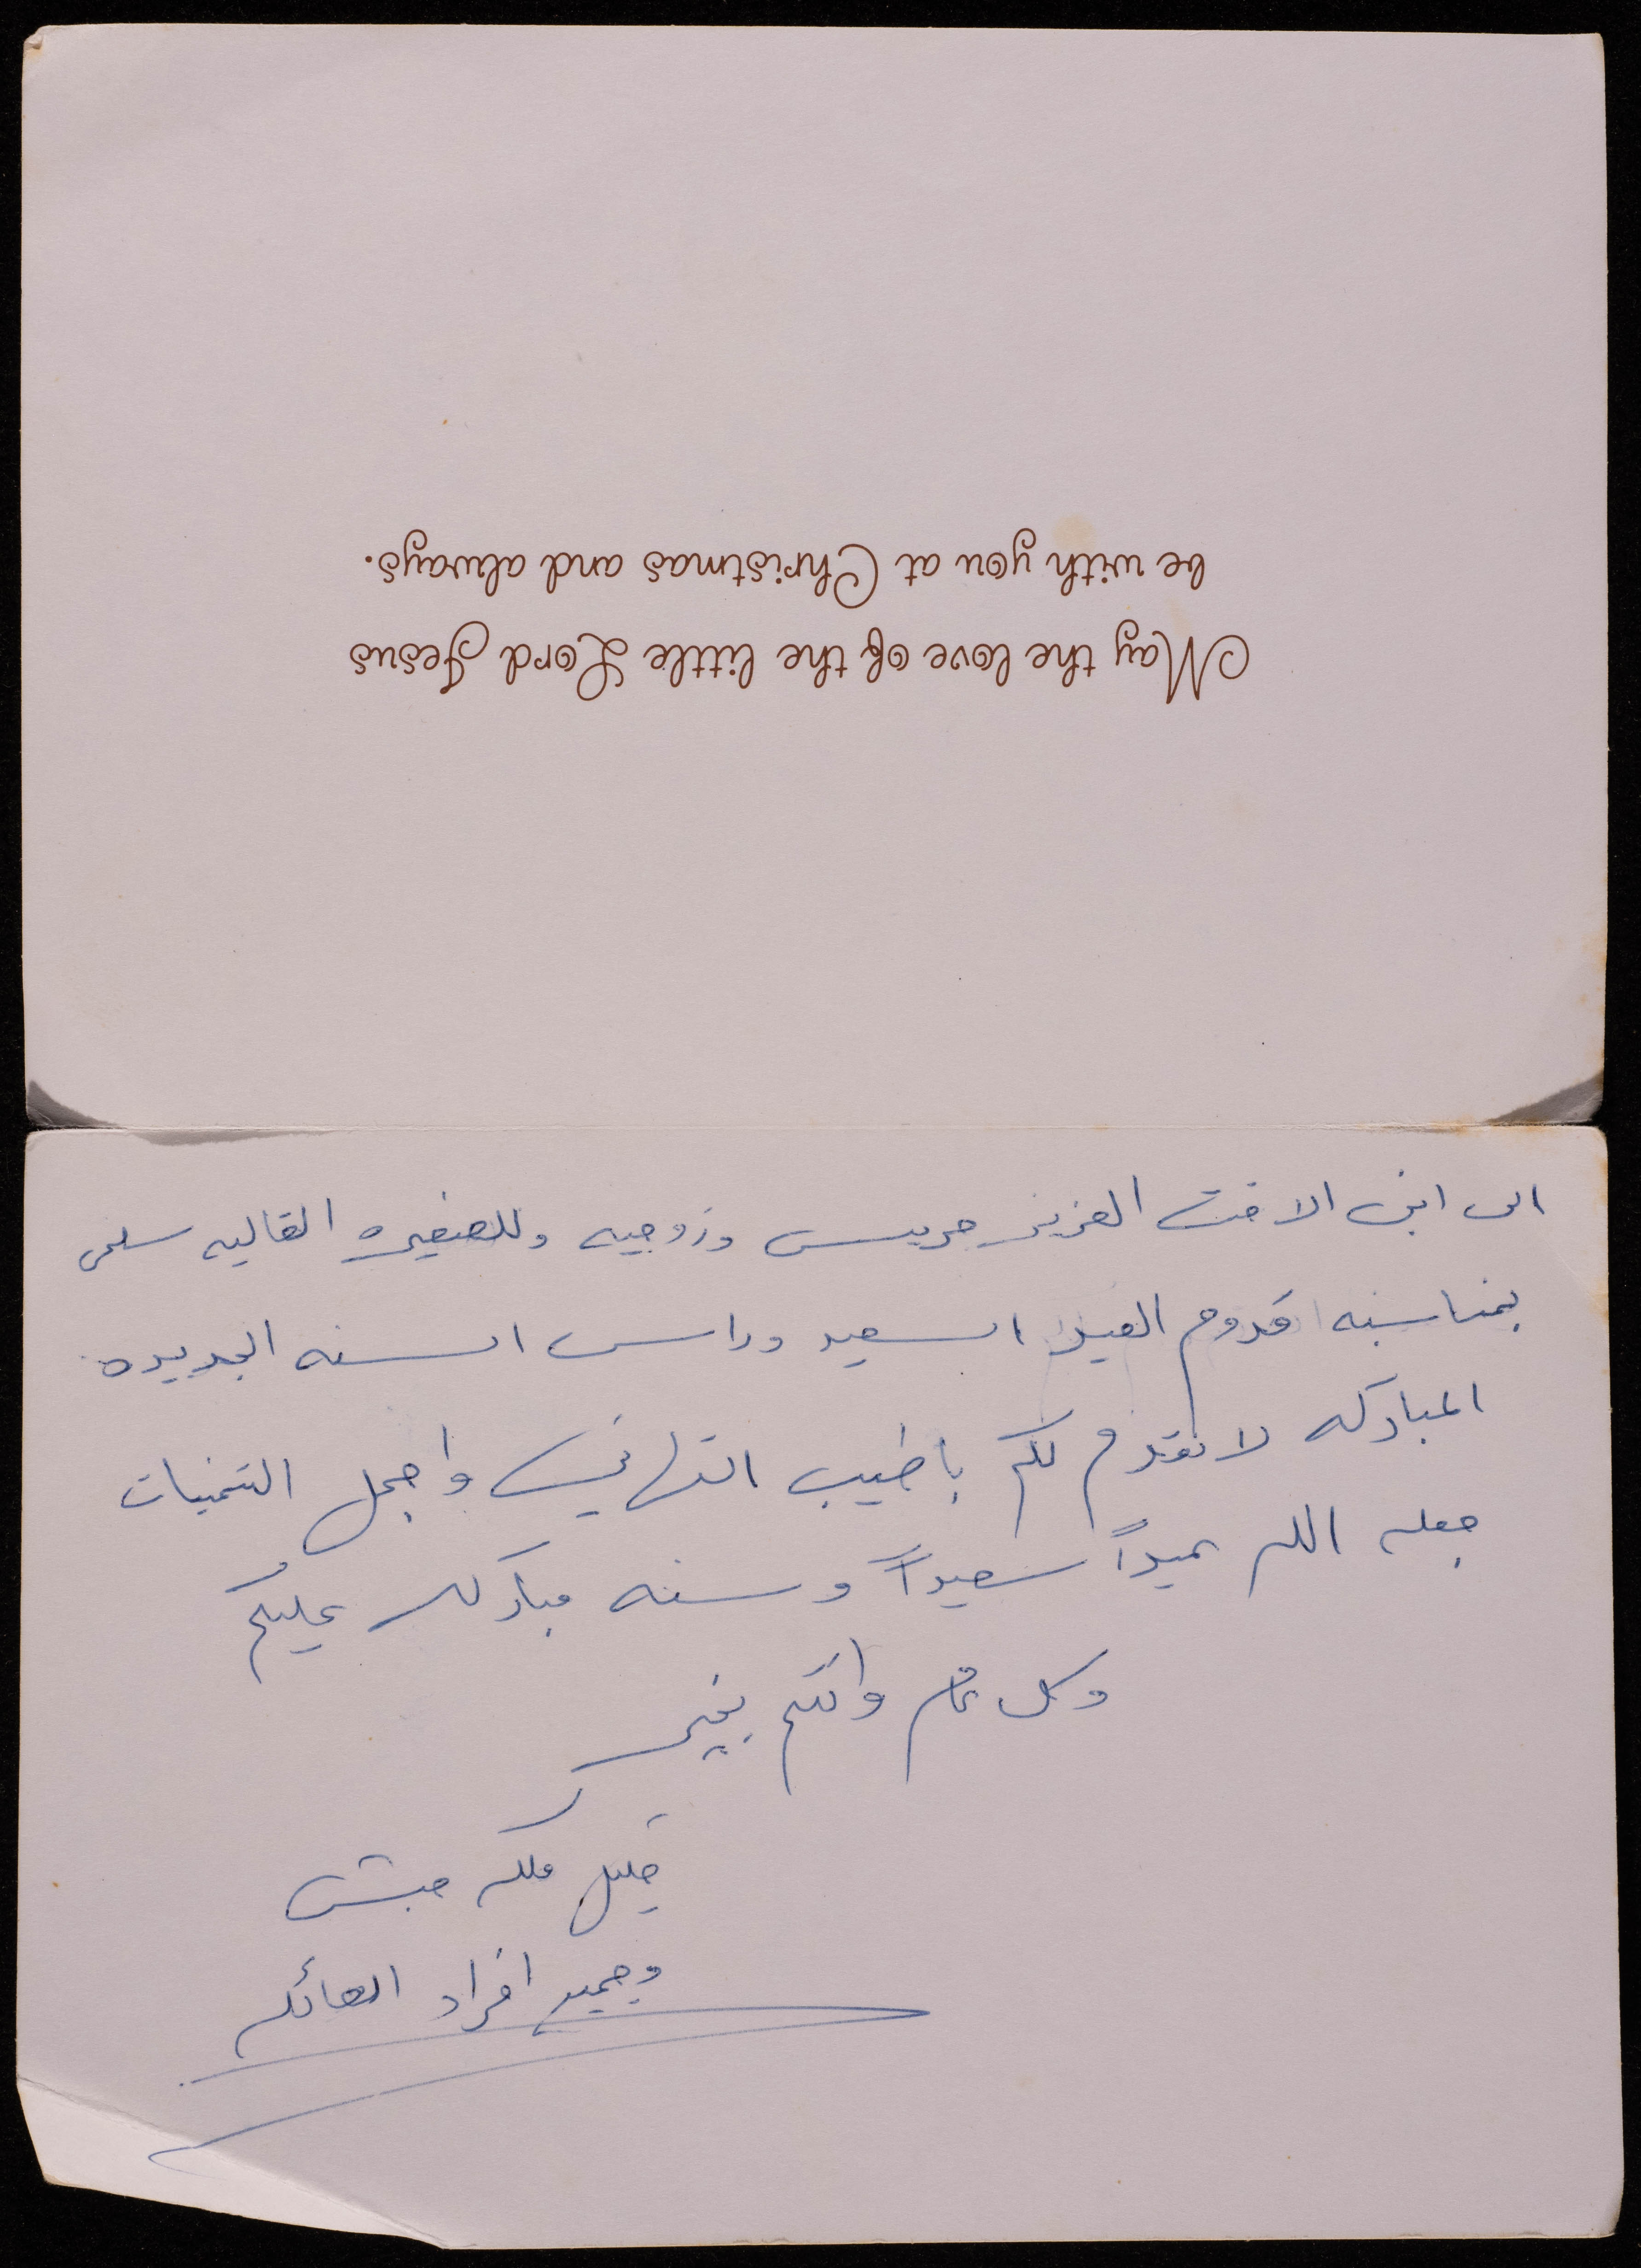 May the love of the little Lord Jesus
be with you at Christmas and always.
الى ابن الاخت العزيز جريس وزوجيه وللصغيره الغاليه سلمى
بمناسبه قدوم العيد السعيد وراس السنه الجديده
المباركه لانقدم لكم باطيب التهاني واجمل التمنيات
جعله الله عيداً سعيداً وسنه مباركه عليكم
وكل عام وانتم بخير
خليل ملكه حبش
وجميع افراد العائله